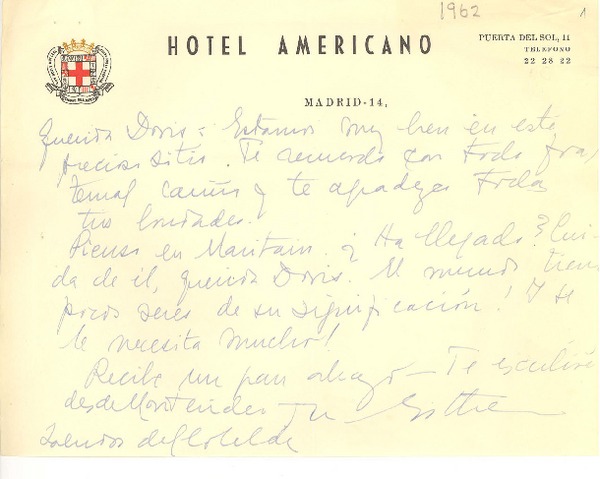 1962
1
HOTEL AMERICANO
PUERTA DEL SOL, 11
TELEFONO
22 28 22
MADRID-14,
Querida Doris: Estamos muy bien en este
precioso sitio. Te recuerdo con todo fra,
ternal cariño y te agradezco todas
tus bondades.
Pienso en Maritain. ¿Ha llegado? Cui-
da de él, querida Doris. El mundo tiene
pocos seres de su significación! Y se
le necesita mucho!
Recibe un gran abrazo — Te escribiré
desde Tu Esther
Saludos de Clotilde